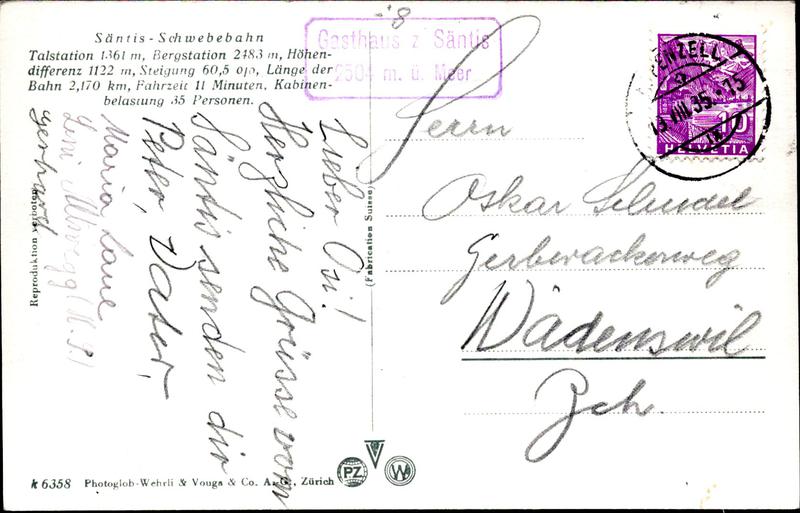 Säntis - Schwebebahn
Talstation 1361 m, Bergstation 2483 m, Höhen-
differenz 1122 m, Steigung 60,5 o/o, Länge der
Bahn 2,170 km, Fahrzeit 11 Minuten. Kabinen-
belastung 35 Personen.
Gasthaus z. Säntis
2504 m. ü. Meer
APPENZELL
13.VIII.35.-15
10
HELVETIA
Lieber Osi!
Herzliche Grüsse vom
Säntis senden dir
Peter, Vater,
Maria Laue
Gerhard
Herrn
Oskar Schudel
Gerberackerweg
Wädenswil
Zch.
Reproduktion verboten
(Fabrication Suisse)
k 6358 Photoglob-Wehrli & Vouga & Co. A. G., Zürich
PZ
W